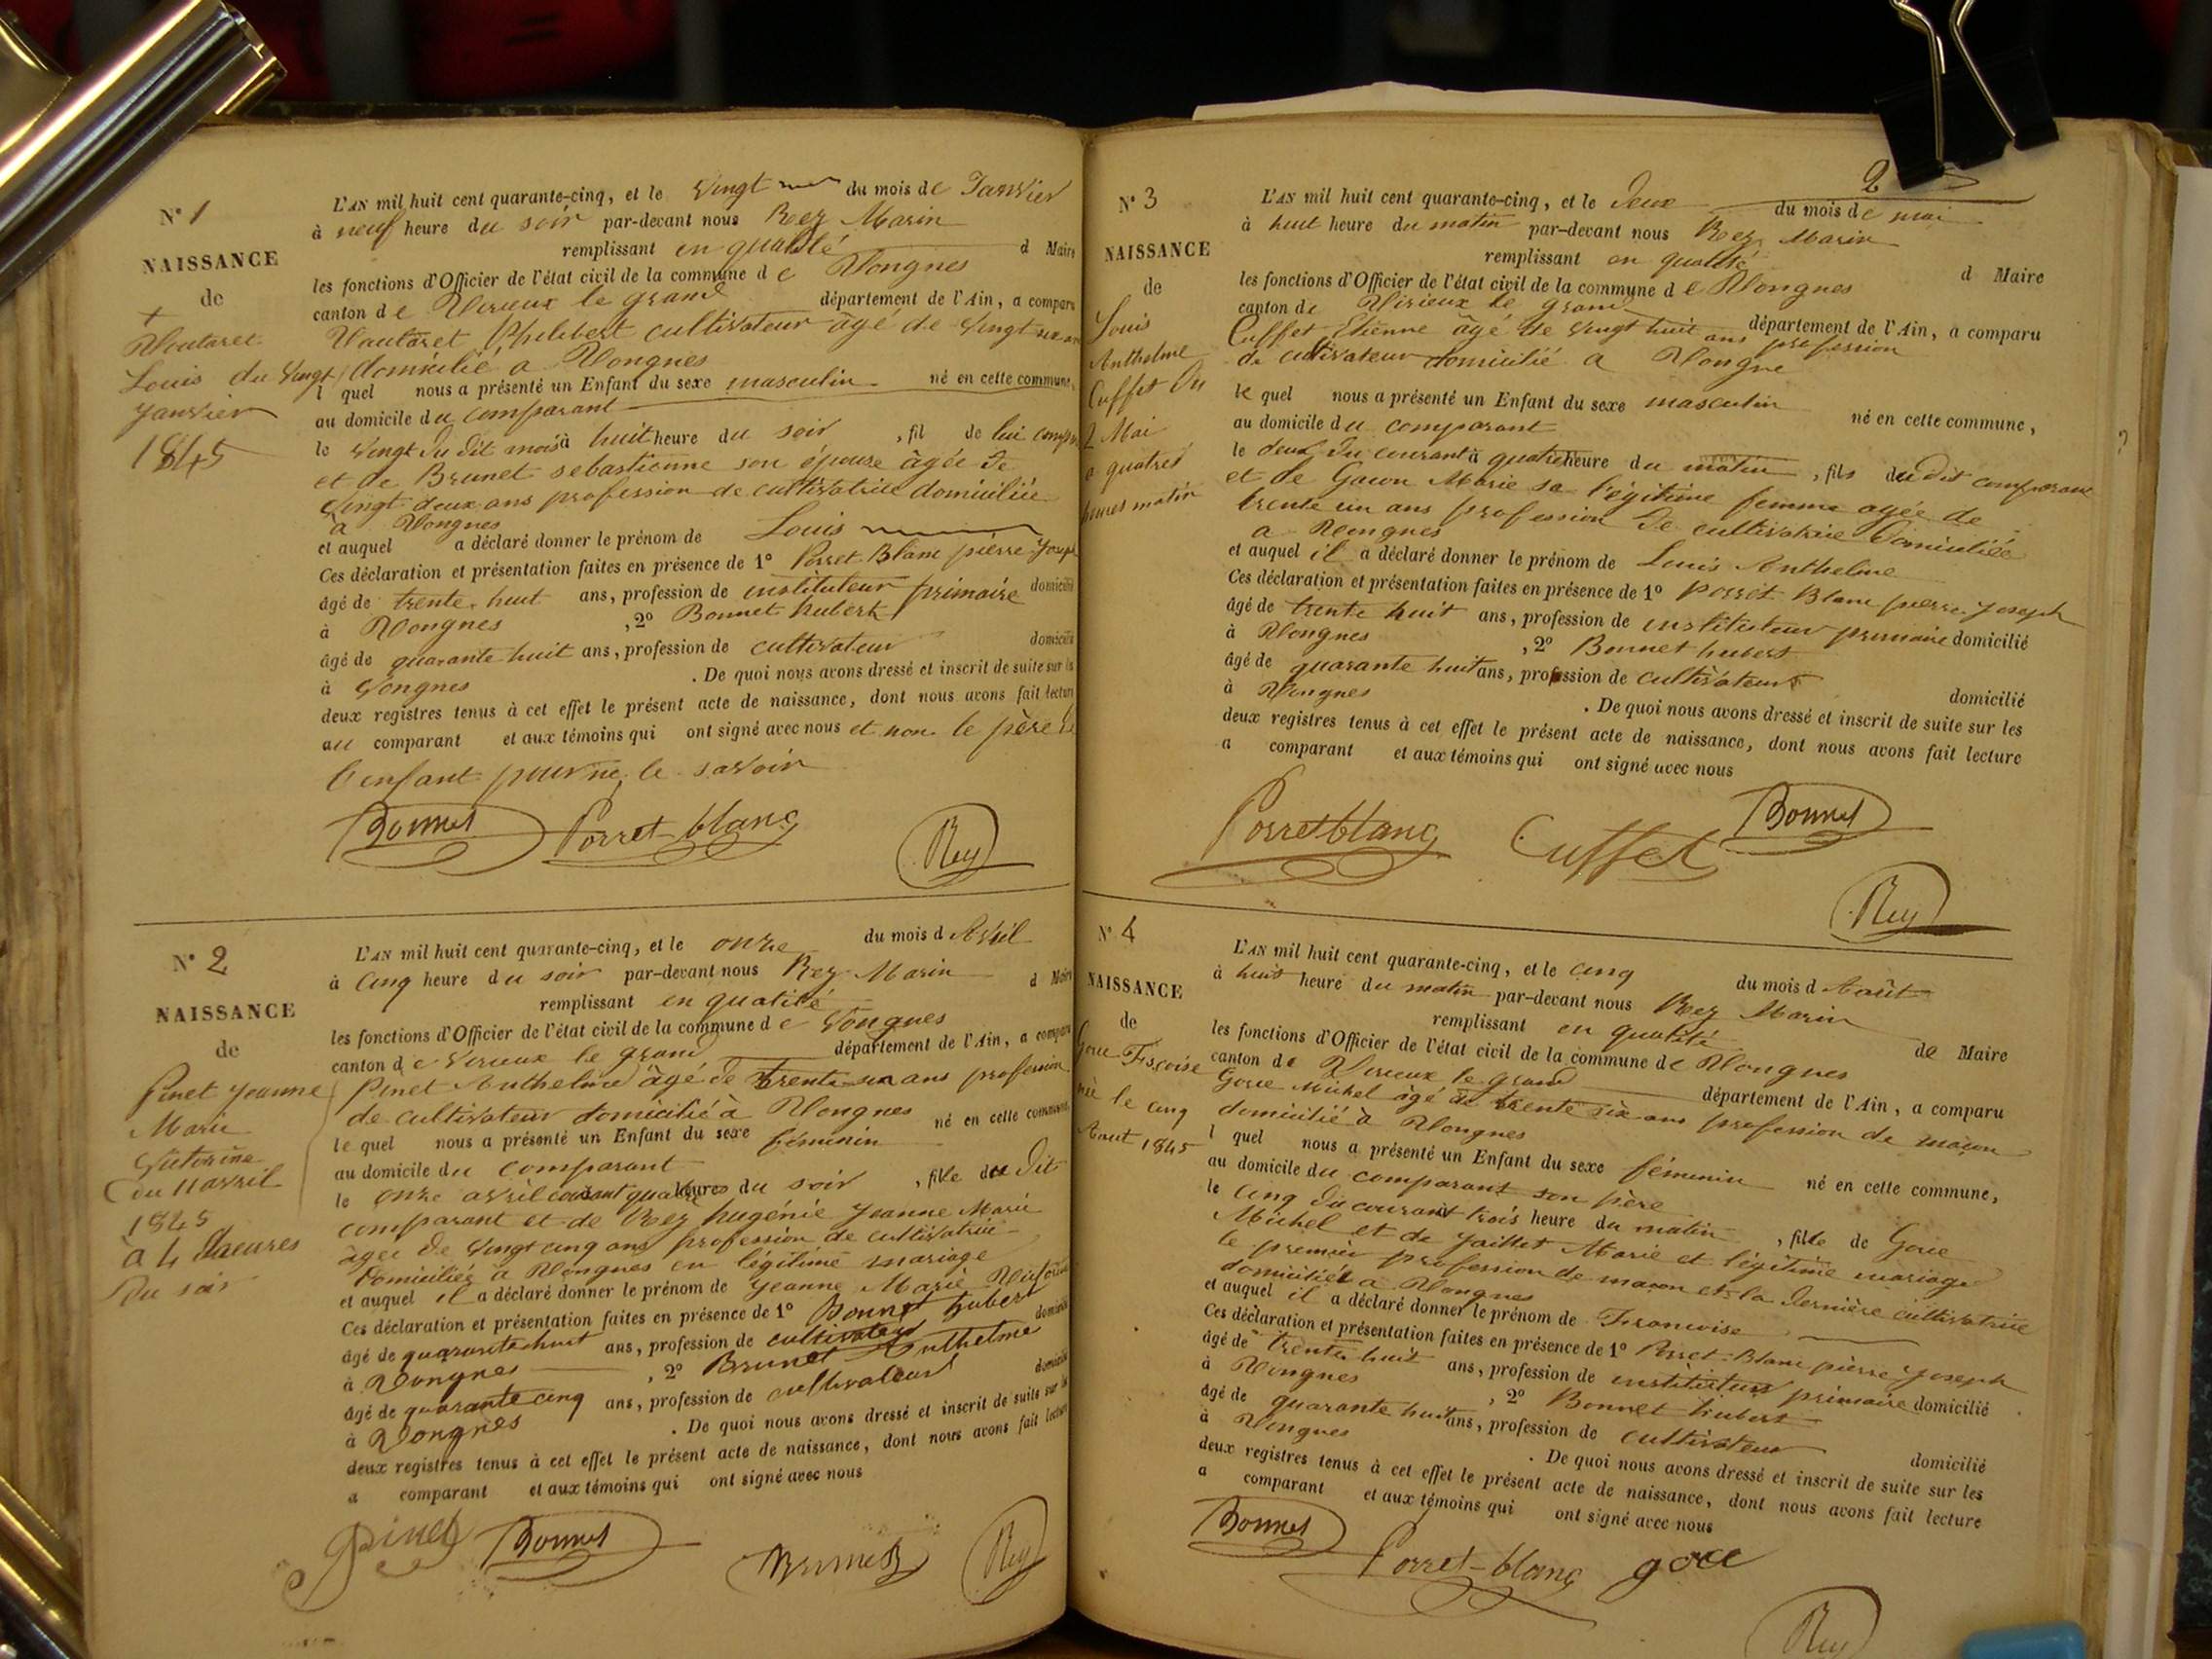 N° 1
NAISSANCE
de
+
Vautaret
Louis du Vingt
janvier
1845
L'AN mil huit cent quarante-cinq, et le Vingt du mois de Janvier
à neuf heure du soir par-devant nous Rey Marin
remplissant en qualité d Maire
les fonctions d'Officier de l'état civil de la commune de Vongnes
canton de Virieux le grand département de l'Ain, a comparu
Vautaret Philibert cultivateur âgé de Vingt
domicilié a Vongnes
l quel nous a présenté un Enfant du sexe masculin né en cette commune,
au domicile du comparant
le Vingt du dit mois à huit heure du soir , fil de lui
et de Brunet sebastienne son épouse âgée de
Vingt deux ans profession de cultivatrice domiciliée
à Vongnes
et auquel a déclaré donner le prénom de Louis
Ces déclaration et présentation faites en présence de 1° Porret Blanc pierre Joseph
âgé de trente huit ans, profession de instituteur primaire domicilié
à Vongnes , 2° Bonnet hubert
âgé de quarante huit ans, profession de cultivateur domicilié
à Vongnes . De quoi nous avons dressé et inscrit de suite sur les
deux registres tenus à cet effet le présent acte de naissance, dont nous avons fait lecture
au comparant et aux témoins qui ont signé avec nous et non le père de
l'enfant pour ne le savoir
Bonnet Porret-blanc Rey
N° 2
NAISSANCE
de
Pinet Jeanne
Marie
Victorine
du 11 avril
1845
à 4 heures
du soir
L'AN mil huit cent quarante-cinq, et le onze du mois d Avril
à cinq heure du soir par-devant nous Rey Marin
remplissant en qualité d Maire
les fonctions d'Officier de l'état civil de la commune de Vongnes
canton de Virieux le grand département de l'Ain, a comparu
Pinet Anthelme âgé de trente ans profession
de cultivateur domicilié à Vongnes
le quel nous a présenté un Enfant du sexe féminin né en cette commune,
au domicile du comparant
le onze avril courant quatre heures du soir , fille du dit
comparant et de Rey hugénie Jeanne Marie
agée de Vingt cinq ans profession de cultivatrice
domiciliés a Vongnes en légitime mariage
et auquel il a déclaré donner le prénom de Jeanne Marie Victorine
Ces déclaration et présentation faites en présence de 1° Bonnet hubert
âgé de quarante huit ans, profession de cultivateur domicilié
à Vongnes , 2° Brunet Anthelme
âgé de quarante cinq ans, profession de cultivateur domicilié
à Vongnes . De quoi nous avons dressé et inscrit de suite sur les
deux registres tenus à cet effet le présent acte de naissance, dont nous avons fait lecture
a comparant et aux témoins qui ont signé avec nous
Pinet Bonnet Brunet Rey
2
N° 3
NAISSANCE
de
Louis
Anthelme
Cuffet Du
2 Mai
a quatres
heures matin
L'AN mil huit cent quarante-cinq, et le deux du mois de mai
à huit heure du matin par-devant nous Rey Marin
remplissant en qualité d Maire
les fonctions d'Officier de l'état civil de la commune de Vongnes
canton de Virieux le grand département de l'Ain, a comparu
Cuffet Etienne âgé de Vingt huit ans profession
de cultivateur domicilié a Vongne
le quel nous a présenté un Enfant du sexe masculin né en cette commune,
au domicile du comparant
le deux du courant à quatre heure du matin , fils du dit comparant
et de Gacon Marie sa légitime femme agée de
trente un ans profession de cultivatrice domiciliée
a Vongnes
et auquel il a déclaré donner le prénom de Louis Anthelme
Ces déclaration et présentation faites en présence de 1° Porret Blanc pierre Joseph
âgé de trente huit ans, profession de instituteur primaire domicilié
à Vongnes , 2° Bonnet hubert
âgé de quarante huit ans, profession de cultivateur domicilié
à Vongnes . De quoi nous avons dressé et inscrit de suite sur les
deux registres tenus à cet effet le présent acte de naissance, dont nous avons fait lecture
a comparant et aux témoins qui ont signé avec nous
Porret blanc Cuffet Bonnet
Rey
N° 4
NAISSANCE
de
Goue Fsçoise
née le cinq
Aout 1845
L'AN mil huit cent quarante-cinq, et le cinq du mois d Août
à huit heure du matin par-devant nous Rey Marin
remplissant en qualité de Maire
les fonctions d'Officier de l'état civil de la commune de Vongnes
canton de Virieux le grand département de l'Ain, a comparu
Goue Michel âgé de trente six ans profession de maçon
domicilié à Vongnes
l quel nous a présenté un Enfant du sexe féminin né en cette commune,
au domicile du comparant son père
le cinq du courant trois heure du matin , fille de Goue
Michel et de Jaillet Marie et légitime mariage
le premier profession de maçon et la dernière cultivatrice
domiciliés a Vongnes
et auquel il a déclaré donner le prénom de Francoise
Ces déclaration et présentation faites en présence de 1° Porret Blanc pierre Joseph
âgé de trente huit ans, profession de instituteur primaire domicilié
à Vongnes , 2° Bonnet hubert
âgé de quarante huit ans, profession de cultivateur domicilié
à Vongnes . De quoi nous avons dressé et inscrit de suite sur les
deux registres tenus à cet effet le présent acte de naissance, dont nous avons fait lecture
a comparant et aux témoins qui ont signé avec nous
Bonnet Porret-blanc goue
Rey